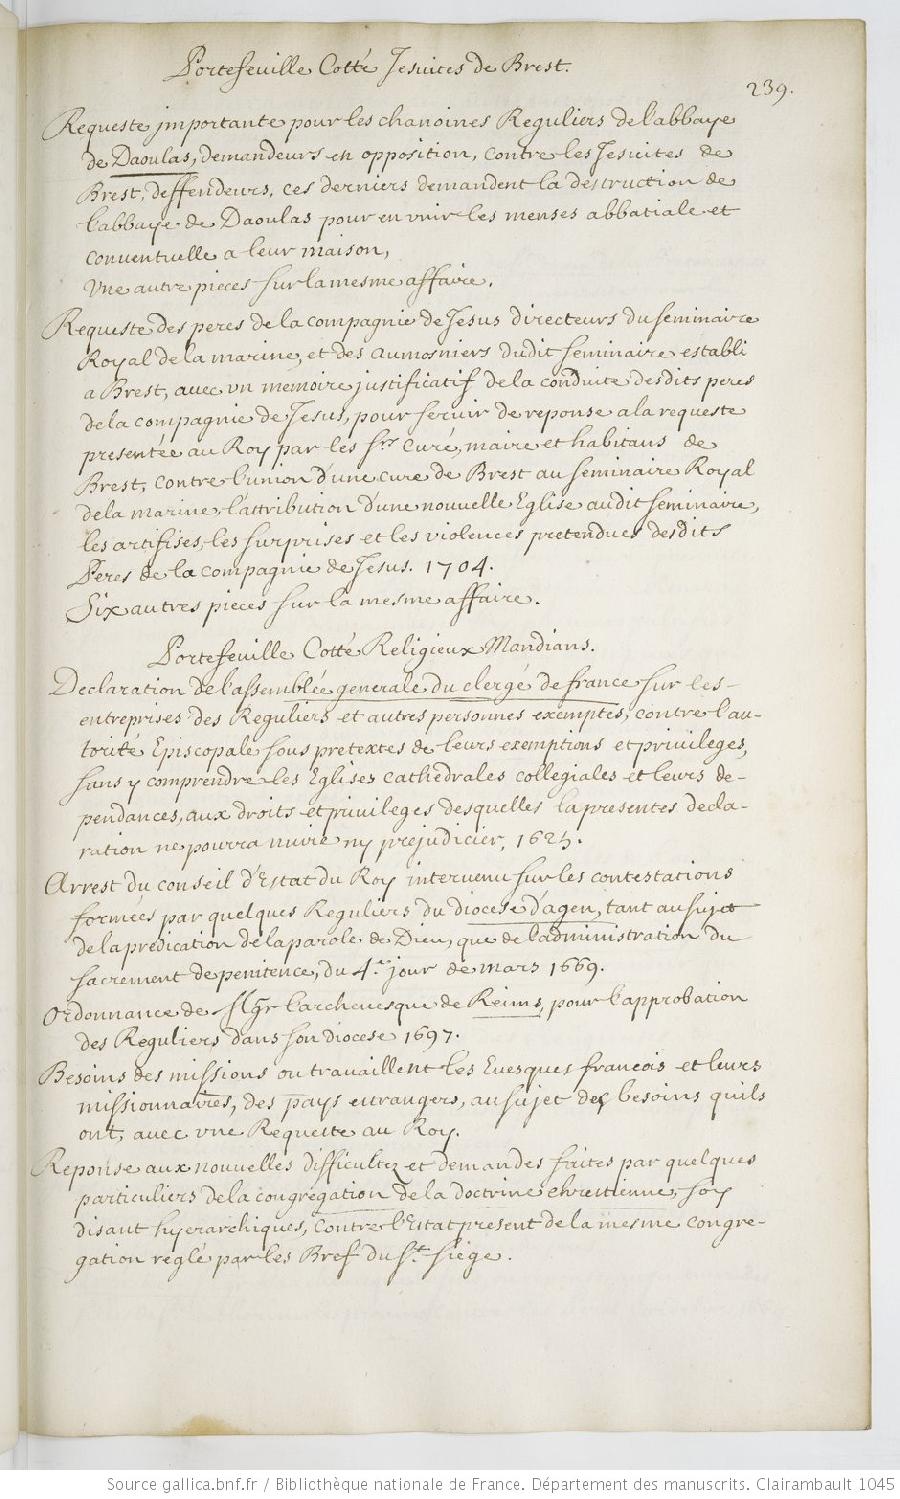 Portefeuille Cotté Jesuices de Brest.
239.
Requeste jmportante pour les chanoines Reguliers de labbaye
de Daoulas, demandeurs en opposition, contre les Jesuites de
Brest, deffendeurs, ces derniers demandent la destruction de
labbaye de Daoulas pour en vnir les menses abbatiale et
conuentuelle a leur maison,
Vne autre pieces sur la mesme affaire.
Requeste des peres de la compagnie de Jesus directeurs du seminaire
Royal de la marine, et des aumosniers dudit seminaire establi
a Brest, avec vn memoire justificatif de la conduite desdits peres
de la compagnie de Jesus, pour seruir de reponse a la requeste
presentée au Roy par les srs Curé, maire et habitans de
Brest, contre l'union d'une cure de Brest au seminaire Royal
de la marine, l'attribution d'une nouvelle Eglise audit seminaire,
les artifises, les surprises et les violences pretendues desdits
Peres de la compagnie de Jesus. 1704.
Six autres pieces sur la mesme affaire.
Portefeuille Cotté Religieux Mandians.
Declaration de l'assemblée generale du clergé de france sur les
entreprises des Reguliers et autres personnes exemptes, contre l'au-
torité Episcopale sous pretextes de leurs exemptions et privileges,
sans y comprendre les Eglises cathedrales collegiales et leurs de-
pendances, aux droits et privileges desquelles la presentes decla-
ration ne pourra nuire ny prejudicier, 1625.
Arrest du conseil d'Estat du Roy intervenu sur les contestations
formées par quelques Reguliers du diocese d'agen, tant au sujet
de la predication de la parole de Dieu, que de l'administration du
sacrement de penitence, du 4e jour de mars 1669.
Ordonnance de Mgr l'archeuesque de Reims, pour l'approbation
des Reguliers dans son diocese 1697.
Besoins des missions ou travaillent les Euesques francois et leurs
missionnaires, des pays etrangers, au sujet des besoins quils
ont, avec vne Requeste au Roy.
Reponse aux nouvelles difficultez et demandes faites par quelques
particuliers de la congregation de la doctrine chrestienne, soy
disant hyerarchiques, contre l'Estat present de la mesme congre-
gation reglé par les Bref du St. siege.
Source gallica.bnf.fr / Bibliothèque nationale de France. Département des manuscrits. Clairambault 1045